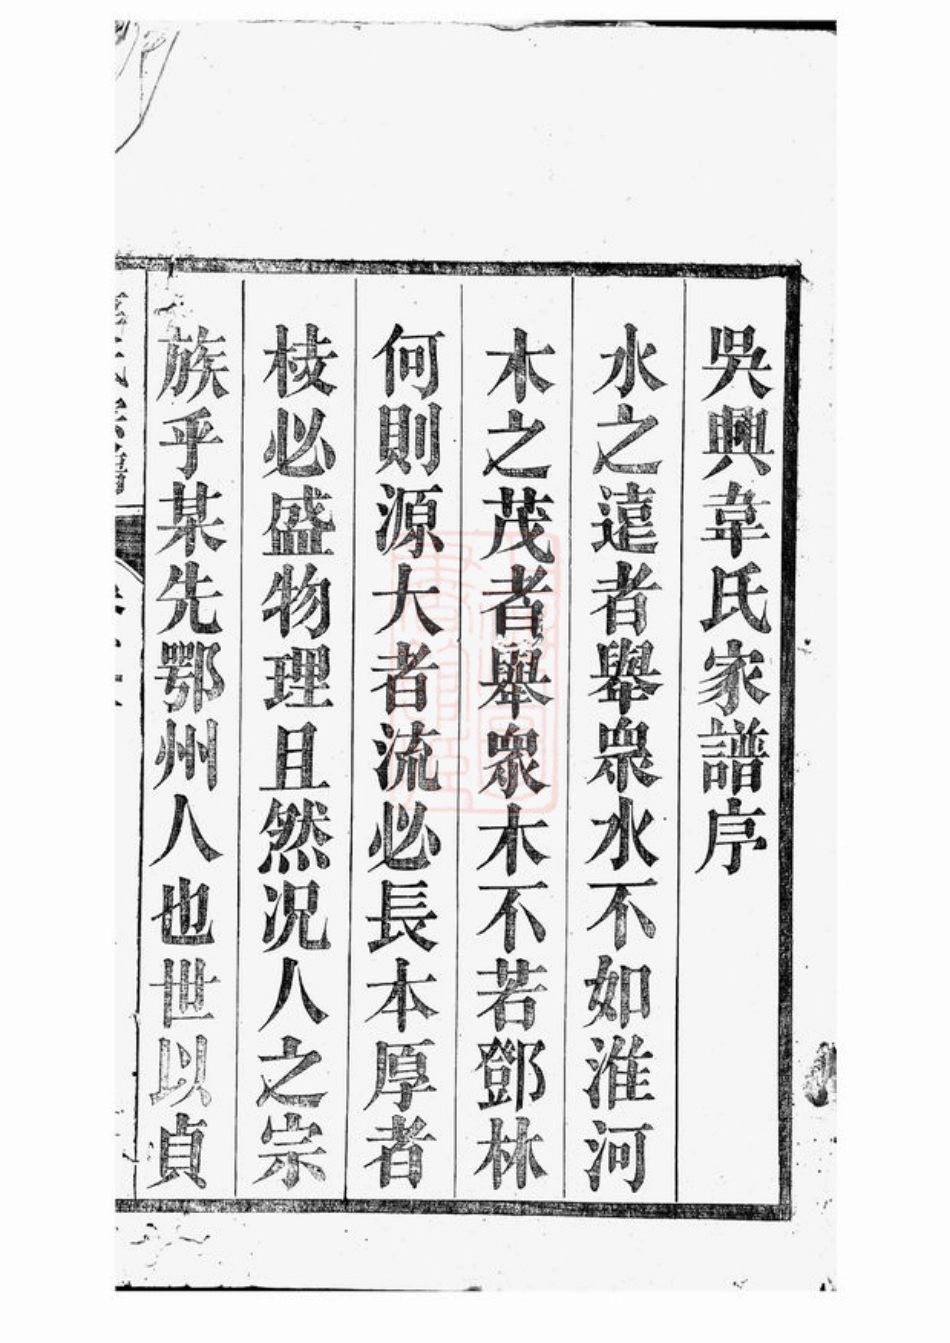 吳興韋氏家譜序
水之遠者舉衆水不如淮河
木之茂者舉衆木不若鄧林
何則源大者流必長本厚者
枝必盛物理且然况人之宗
族乎某先鄂州人也世以貞